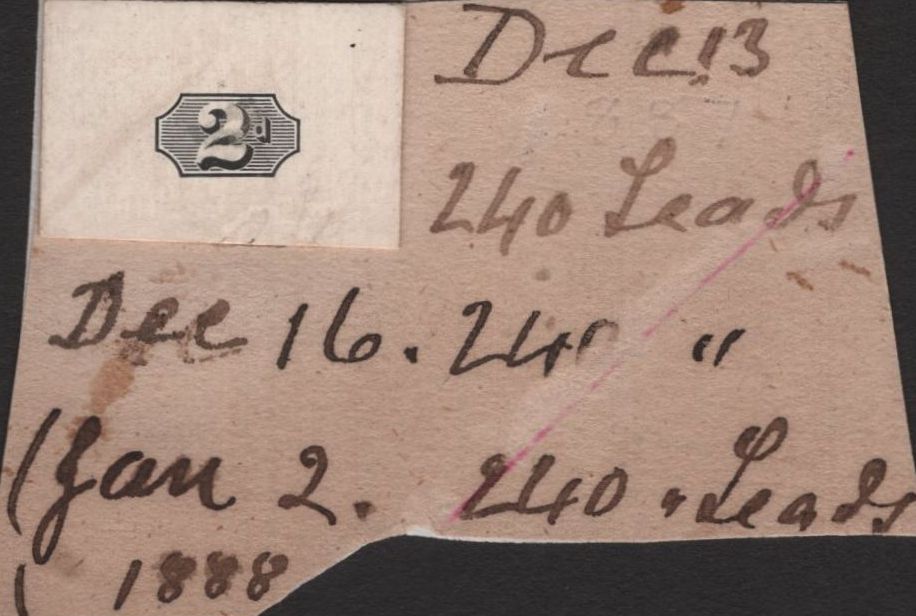 2d
Dec 13
240 Leads
Dec 16. 240 "
(Jan 2. 240 " Leads
( 1888